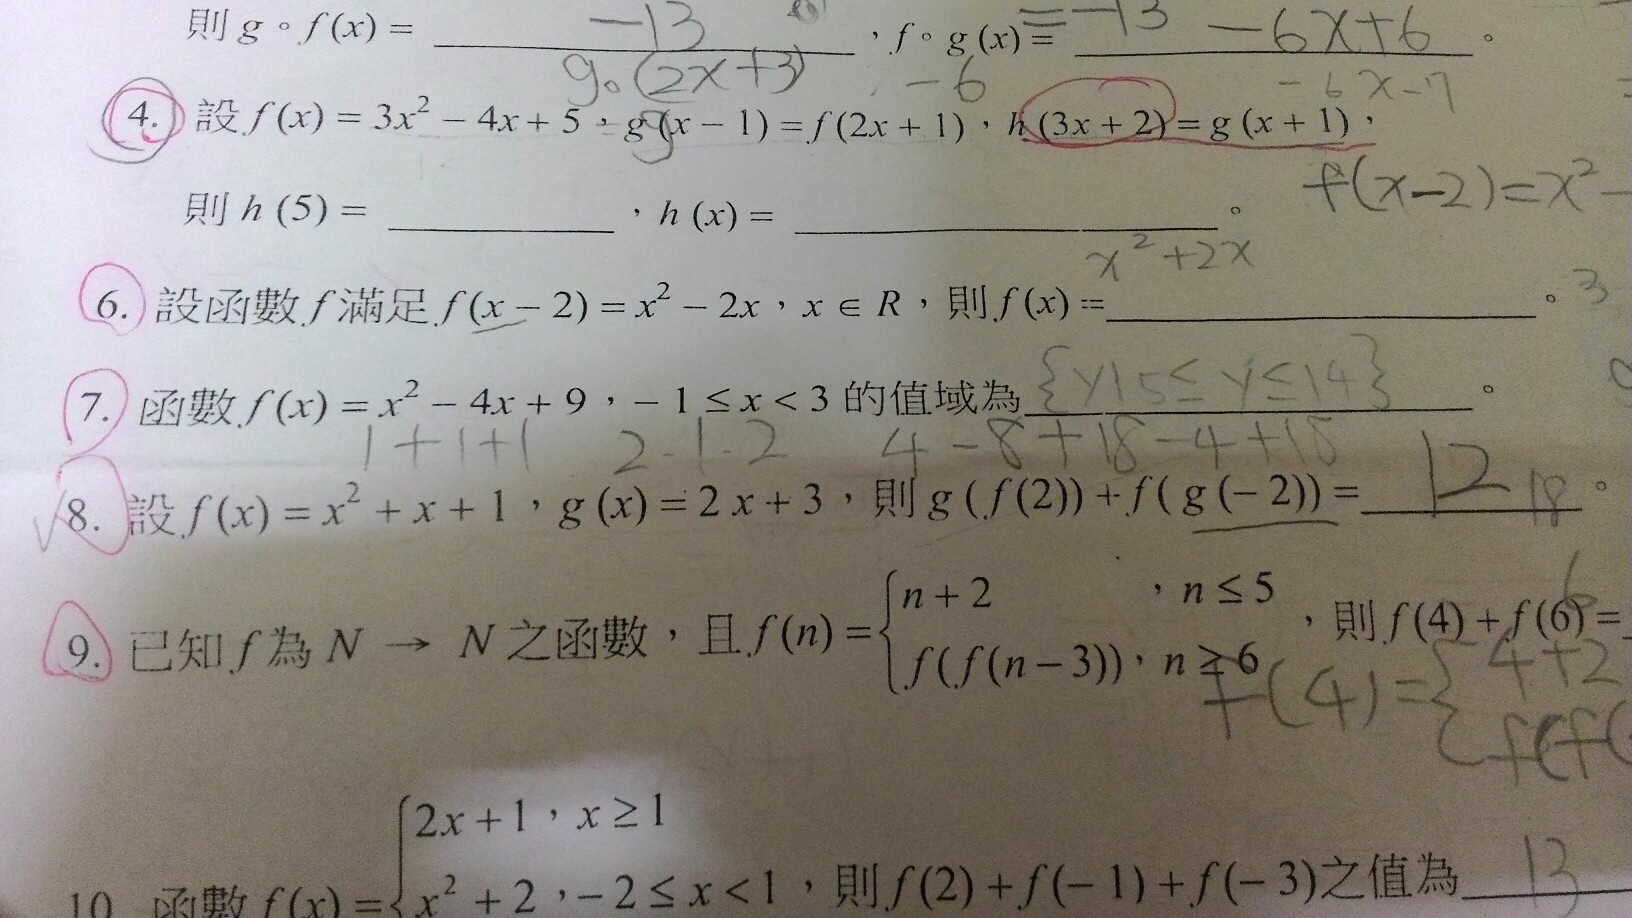 則 g∘f(x) = -13 , f∘g(x) = -13 -6x+6 。
g∘(2x+3) -6 -6x-7
4. 設 f(x) = 3x² − 4x + 5,g(x − 1) = f(2x + 1),h(3x + 2) = g(x + 1),
f(x-2)=x²-
則 h(5) = ,h(x) = 。
x²+2x
6. 設函數 f 滿足 f(x − 2) = x² − 2x,x ∈ R,則 f(x) = 。 3
7. 函數 f(x) = x² − 4x + 9,− 1 ≤ x < 3 的值域為 {y|5≤y≤14} 。
1+1+1 2-1-2 4-8+18-4+18
8. 設 f(x) = x² + x + 1,g(x) = 2x + 3,則 g(f(2)) + f(g(− 2)) = 12 18 。
6
9. 已知 f 為 N → N 之函數,且 f(n) = { n + 2 ,n ≤ 5
f(f(n − 3)),n ≥ 6 ,則 f(4) + f(6) =
f(4)={ 4+2
f(f(
2x + 1,x ≥ 1
10. 函數 f(x) = { x² + 2,− 2 ≤ x < 1 ,則 f(2) + f(− 1) + f(− 3) 之值為 13